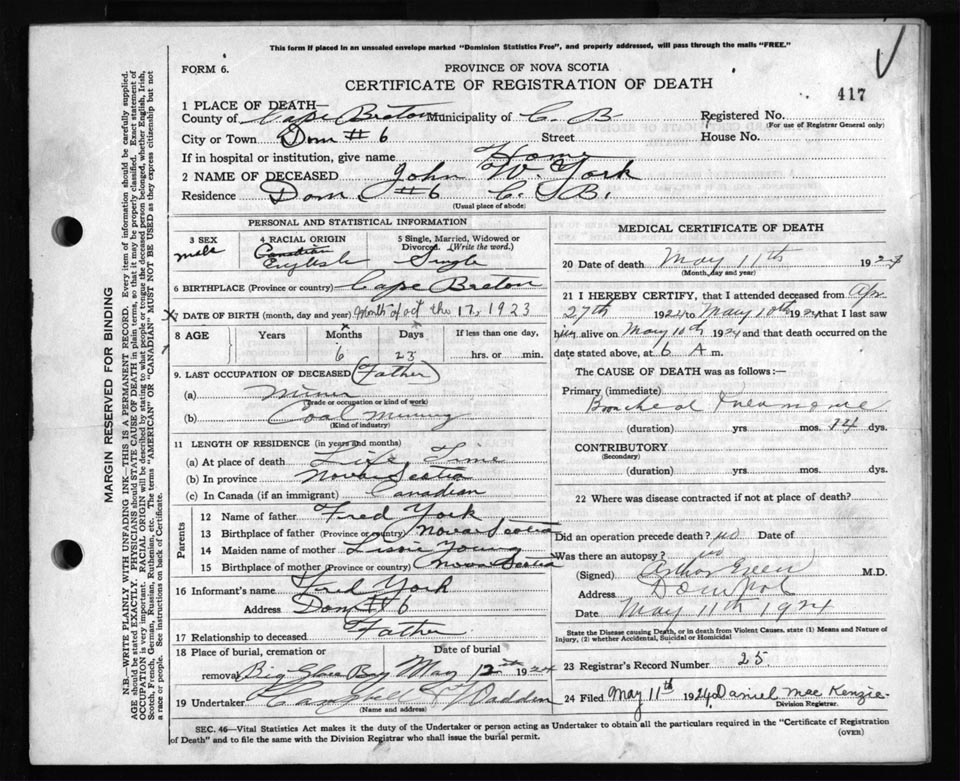 This form if placed in an unsealed envelope marked "Dominion Statistics Free", and properly addressed, will pass through the mails "FREE."
FORM 6.
PROVINCE OF NOVA SCOTIA
CERTIFICATE OF REGISTRATION OF DEATH
417
1 PLACE OF DEATH—
County of Cape Breton Municipality of C. B. Registered No.
(For use of Registrar General only)
City or Town Dom #6 Street House No.
If in hospital or institution, give name Home
2 NAME OF DECEASED John W. York
Residence Dom #6 C. B.
(Usual place of abode)
PERSONAL AND STATISTICAL INFORMATION
3 SEX male
4 RACIAL ORIGIN Canadian English
5 Single, Married, Widowed or Divorced. (Write the word.) Single
6 BIRTHPLACE (Province or country) Cape Breton
7 DATE OF BIRTH (month, day and year) Month of oct the 17, 1923
8 AGE Years Months Days If less than one day,
6 23 hrs. or min.
9. LAST OCCUPATION OF DECEASED (Father)
(a) Miner
(Trade or occupation or kind of work)
(b) Coal Mining
(Kind of industry)
11 LENGTH OF RESIDENCE (in years and months)
(a) At place of death Life Time
(b) In province Nova Scotia
(c) In Canada (if an immigrant) Canadian
Parents
12 Name of father Fred York
13 Birthplace of father (Province or country) Nova Scotia
14 Maiden name of mother Lissie Young
15 Birthplace of mother (Province or country) Nova Scotia
16 Informant's name Fred York
Address Dom # 6
17 Relationship to deceased Father
18 Place of burial, cremation or removal Date of burial
Big Glace Bay May 12th 1924
19 Undertaker Campbell & Wadden
(Name and address)
MEDICAL CERTIFICATE OF DEATH
20 Date of death May 11th 1924
(Month, day and year)
21 I HEREBY CERTIFY, that I attended deceased from Apr
27th 1924 to May 10th 1924 that I last saw
him alive on May 10th 1924 and that death occurred on the
date stated above, at 6 A m.
The CAUSE OF DEATH was as follows:—
Primary (immediate)
Bronchial Pneumonia
(duration) yrs mos. 14 dys.
CONTRIBUTORY
(Secondary)
(duration) yrs. mos. dys.
22 Where was disease contracted if not at place of death?
Did an operation precede death? no Date of
Was there an autopsy? no
(Signed) Arthur Green M.D.
Address Dom No 6
Date May 11th 1924
State the Disease causing Death, or in death from Violent Causes, state (1) Means and Nature of Injury, (2) whether Accidental, Suicidal or Homicidal
23 Registrar's Record Number 25
24 Filed May 11th 1924, Daniel Mac Kenzie
Division Registrar.
SEC. 46—Vital Statistics Act makes it the duty of the Undertaker or person acting as Undertaker to obtain all the particulars required in the "Certificate of Registration
of Death" and to file the same with the Division Registrar who shall issue the burial permit.
(OVER)
MARGIN RESERVED FOR BINDING
N.B.—WRITE PLAINLY WITH UNFADING INK—THIS IS A PERMANENT RECORD. Every item of information should be carefully supplied.
AGE should be stated EXACTLY. PHYSICIANS should STATE CAUSE OF DEATH in plain terms, so that it may be properly classified. Exact statement of
OCCUPATION is very important. RACIAL ORIGIN will be described by stating to what people or tongue the deceased person belonged, whether English, Irish,
Scotch, French, German, Russian, Ruthenian, etc. The terms "AMERICAN" OR "CANADIAN" MUST NOT BE USED as they express citizenship but not
a race or people. See instructions on back of Certificate.